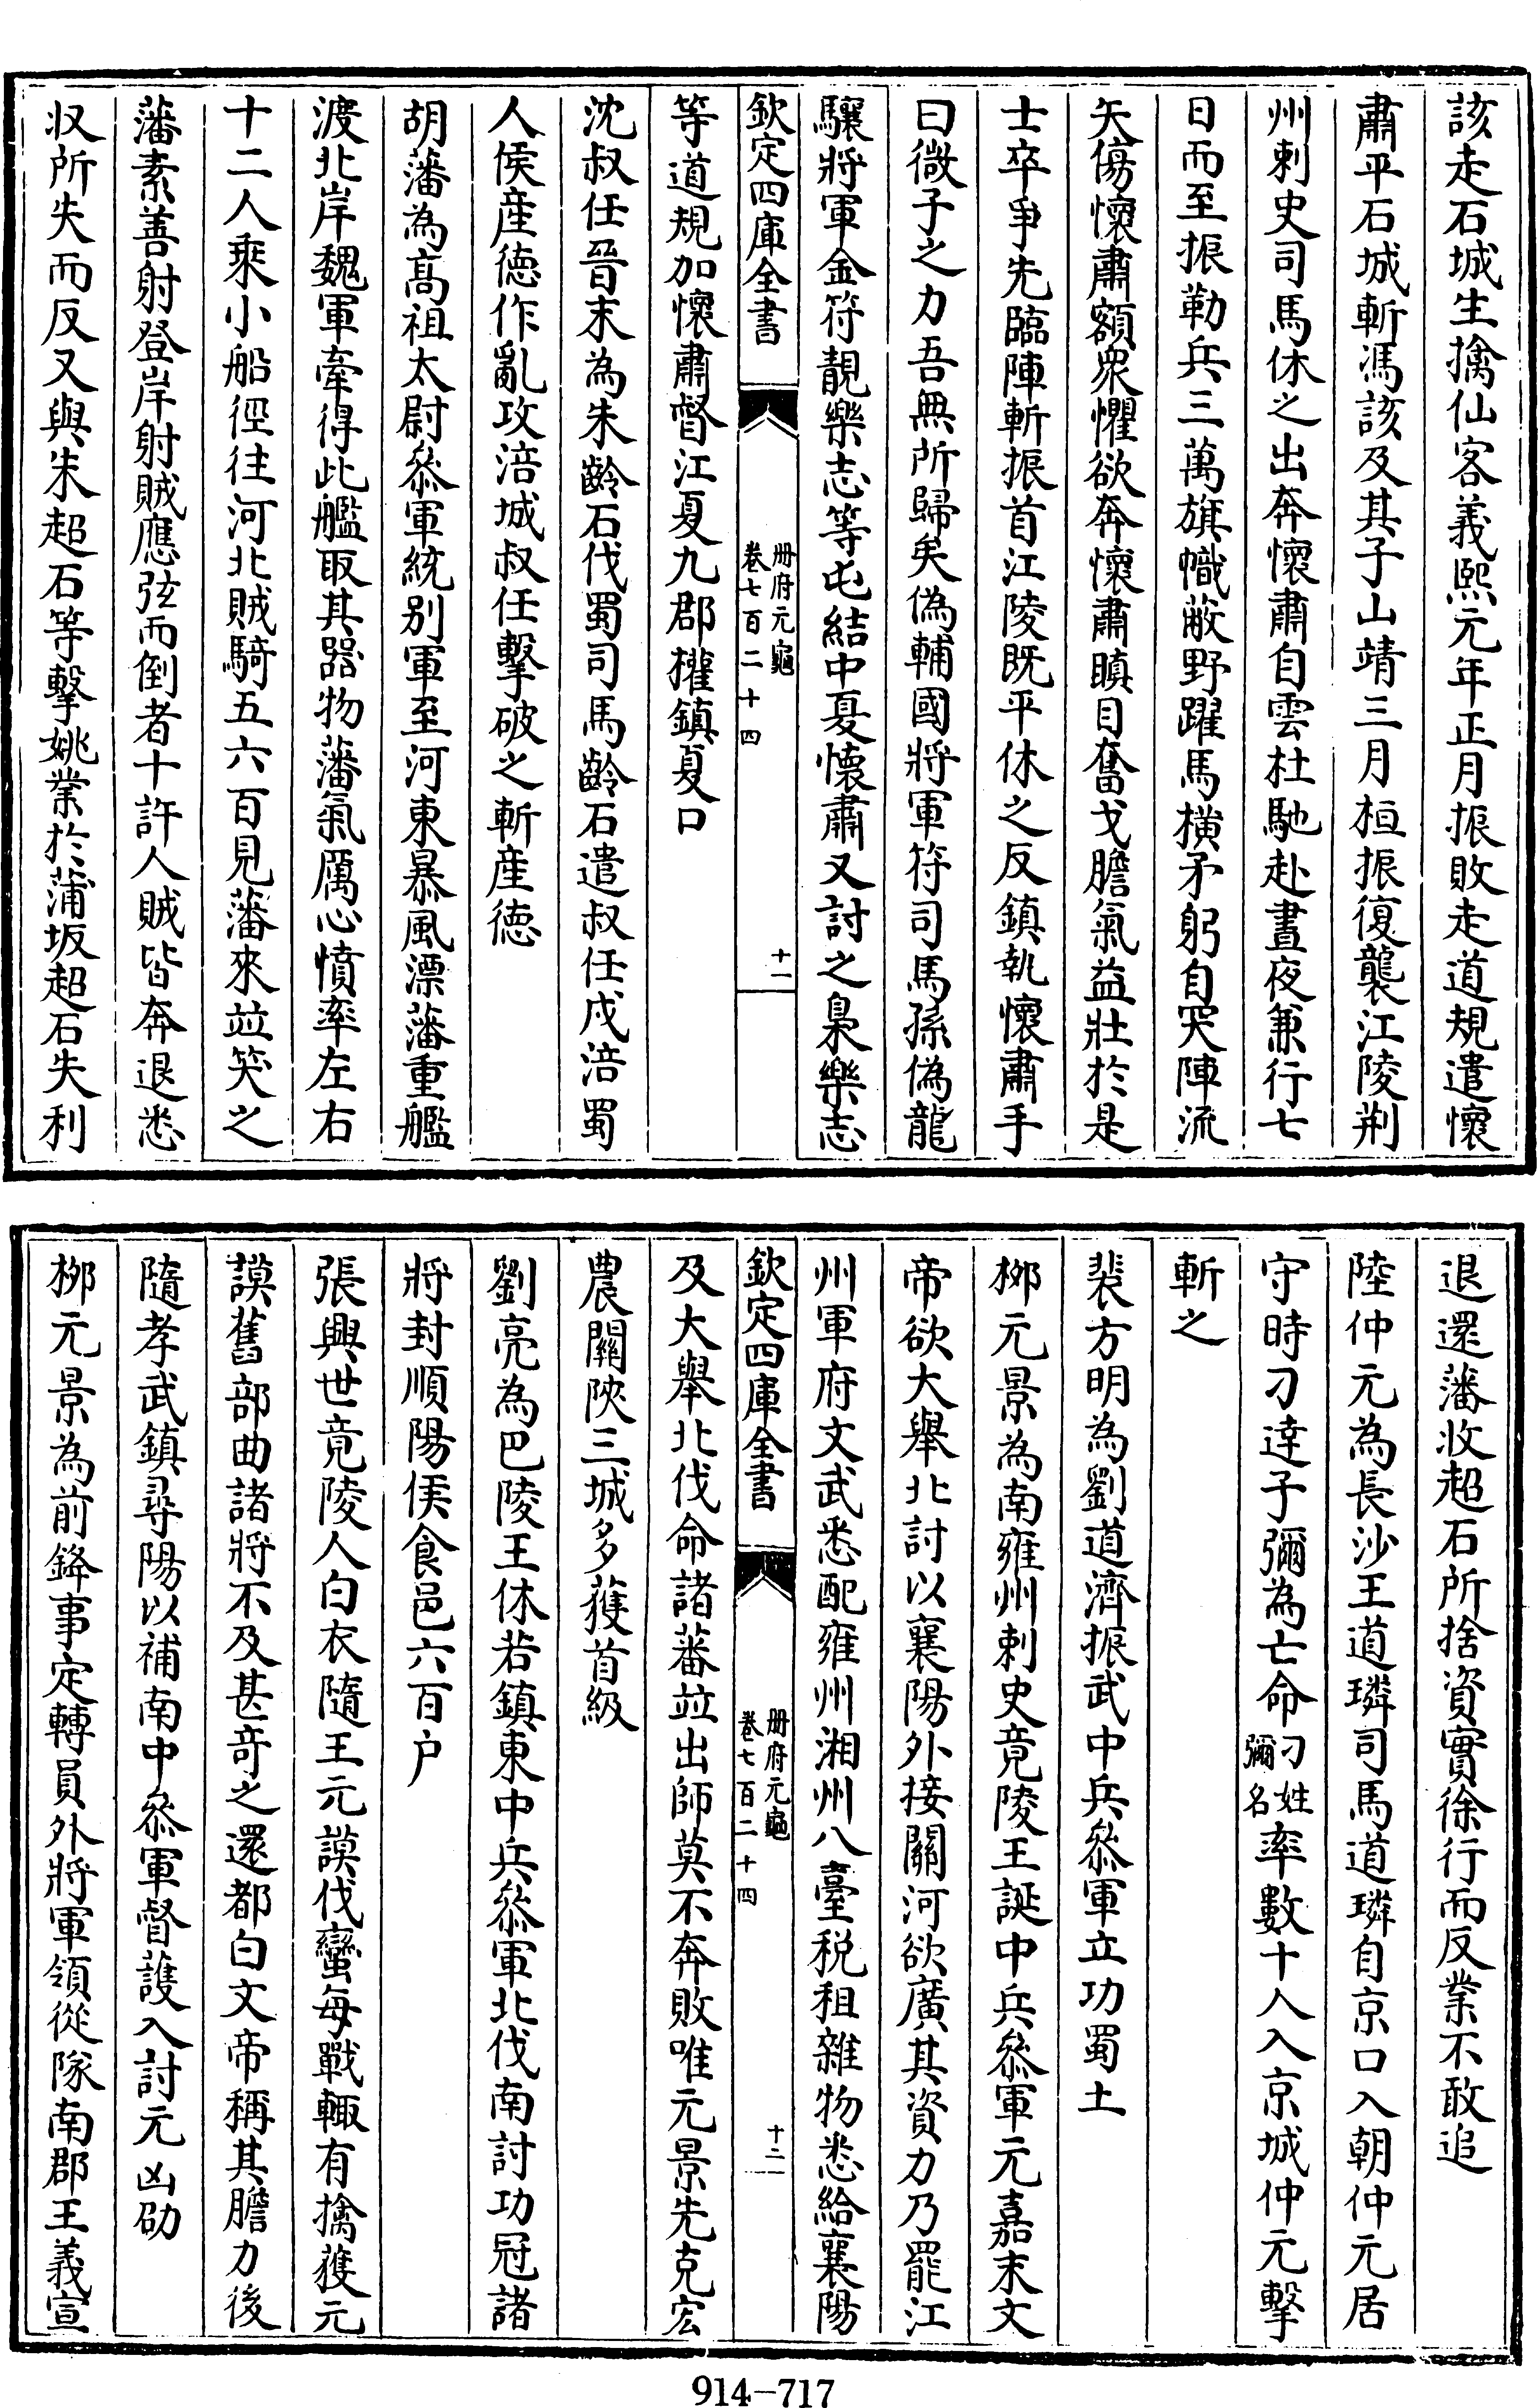 該走石城生擒仙客義熙元年正月振敗走道規遣懷
肅平石城斬馮該及其子山靖三月桓振復襲江陵荆
州刺史司馬休之出奔懷肅自雲杜馳赴晝夜兼行七
日而至振勒兵三萬旗幟蔽野躍馬橫矛躬自突陣流
矢傷懷肅額衆懼欲奔懷肅瞋目奮戈膽氣益壯於是
士卒爭先臨陣斬振首江陵既平休之反鎮執懷肅手
曰微子之力吾無所歸矣偽輔國將軍符司馬孫偽龍
驤將軍金符靚樂志等屯結中夏懷肅又討之梟樂志
欽定四庫全書
册府元龜
卷七百二十四
十一
等道規加懷肅督江夏九郡權鎮夏口
沈叔任晉末為朱齡石伐蜀司馬齡石遣叔任戍涪蜀
人侯産德作亂攻涪城叔任擊破之斬産德
胡藩為高祖太尉叅軍統别軍至河東暴風漂藩重艦
渡北岸魏軍牽得此艦取其器物藩氣厲心憤率左右
十二人乘小船徑往河北賊騎五六百見藩來並笑之
藩素善射登岸射賊應弦而倒者十許人賊皆奔退悉
収所失而反又與朱超石等擊姚業於蒲坂超石失利
退還藩收超石所捨資實徐行而反業不敢追
陸仲元為長沙王道璘司馬道璘自京口入朝仲元居
守時刁逵子彌為亡命刁姓彌名率數十人入京城仲元擊
斬之
裴方明為劉道濟振武中兵叅軍立功蜀土
栁元景為南雍州刺史竟陵王誕中兵叅軍元嘉末文
帝欲大舉北討以襄陽外接關河欲廣其資力乃罷江
州軍府文武悉配雍州湘州八臺税租雜物悉給襄陽
欽定四庫全書
册府元龜
卷七百二十四
十二
及大舉北伐命諸蕃並出師莫不奔敗唯元景先克宏
農關陜三城多獲首級
劉亮為巴陵王休若鎮東中兵叅軍北伐南討功冠諸
將封順陽侯食邑六百户
張興世竟陵人白衣隨王元謨伐蠻每戰輙有擒獲元
謨舊部曲諸將不及甚奇之還都白文帝稱其膽力後
隨孝武鎮尋陽以補南中叅軍督護入討元凶劭
栁元景為前鋒事定轉員外將軍領從隊南郡王義宣
914-717